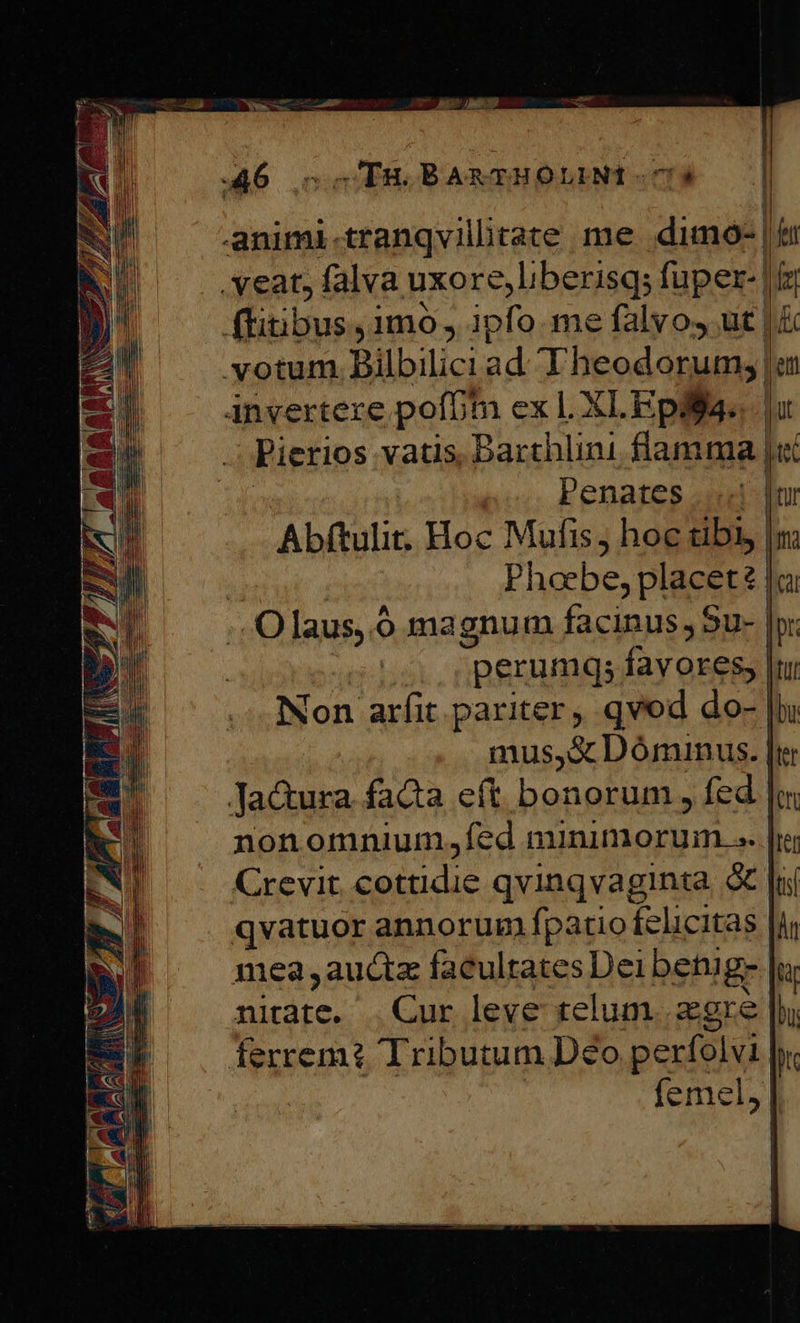 46 TH. BARTHOLINI
animi tranqvillitate me dimo-
veat, ſalva uxore, liberisq; ſuper-
ſtitibus, imò, ipſo me ſalvo, ut
votum Bilbilici ad Theodorum,
invertere poſſim ex l. XI. Epi94.
Pierios vatis, Barthlini flamma
Penates
Abſtulit. Hoc Muſis, hoc tibi,
Phœbe, placet?
O laus, ô magnum facinus, Su-
perumq; favores,
Non arſit pariter, qvod do-
mus, & Dóminus.
Jactura facta eſt bonorum, ſed
non omnium, ſed minimorum.
Crevit cottidie qvinqvaginta &
qvatuor annorum ſpatio felicitas
mea, auctæ facultates Dei benig-
nitate. Cur leve telum ægre
ferrem? Tributum Deo perſolvi
ſemel,